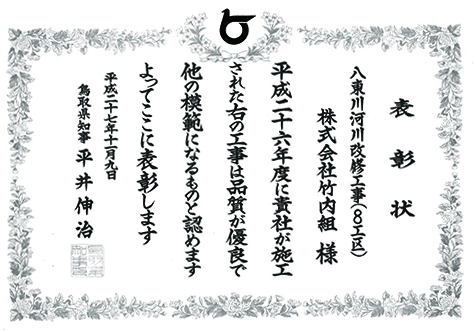 表彰状
八東川河川改修工事(8工区)
株式会社竹内組 様
平成二十六年度に貴社が施工
された右の工事は品質が優良で
他の模範になるものと認めます
よってここに表彰します
平成二十七年十一月九日
鳥取県知事 平井伸治